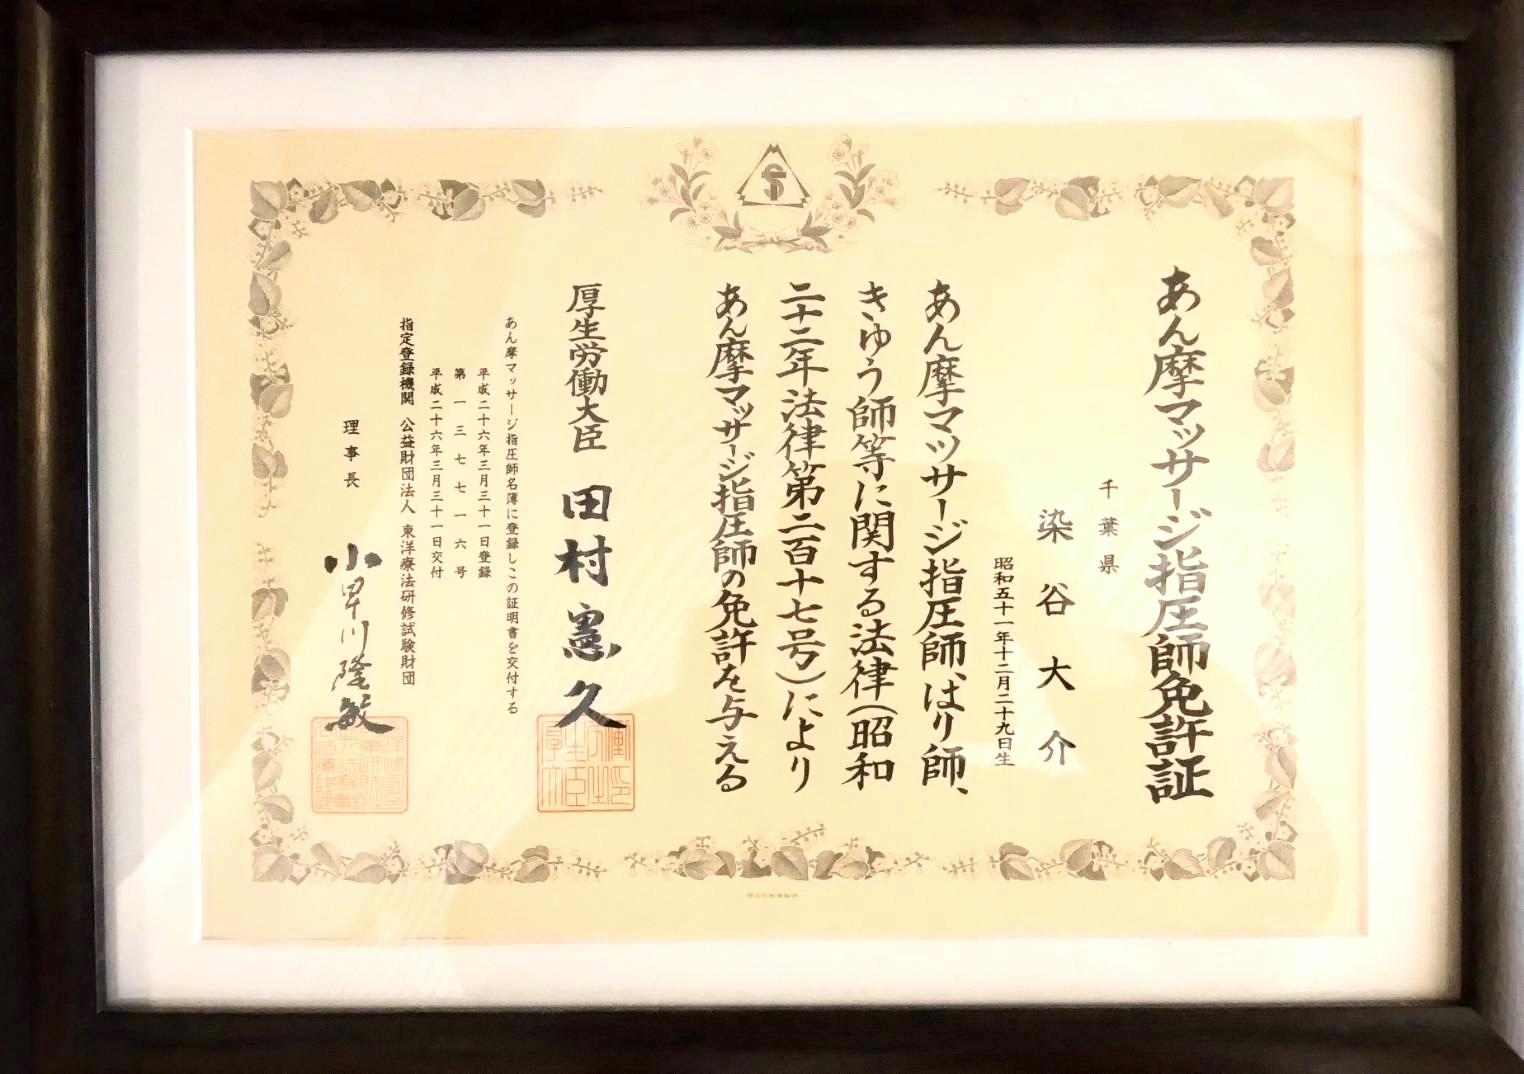 あん摩マッサージ指圧師免許証
千葉県
染谷大介
昭和五十一年十二月二十九日生
あん摩マツサージ指圧師、はり師、
きゆう師等に関する法律(昭和
二十二年法律第二百十七号)により
あん摩マッサージ指圧師の免許を与える
厚生労働大臣 田村憲久
あん摩マッサージ指圧師名簿に登録しこの証明書を交付する
平成二十六年三月三十一日登録
第一三七七一六号
平成二十六年三月三十一日交付
指定登録機関 公益財団法人 東洋療法研修試験財団
理事長 小早川隆敏